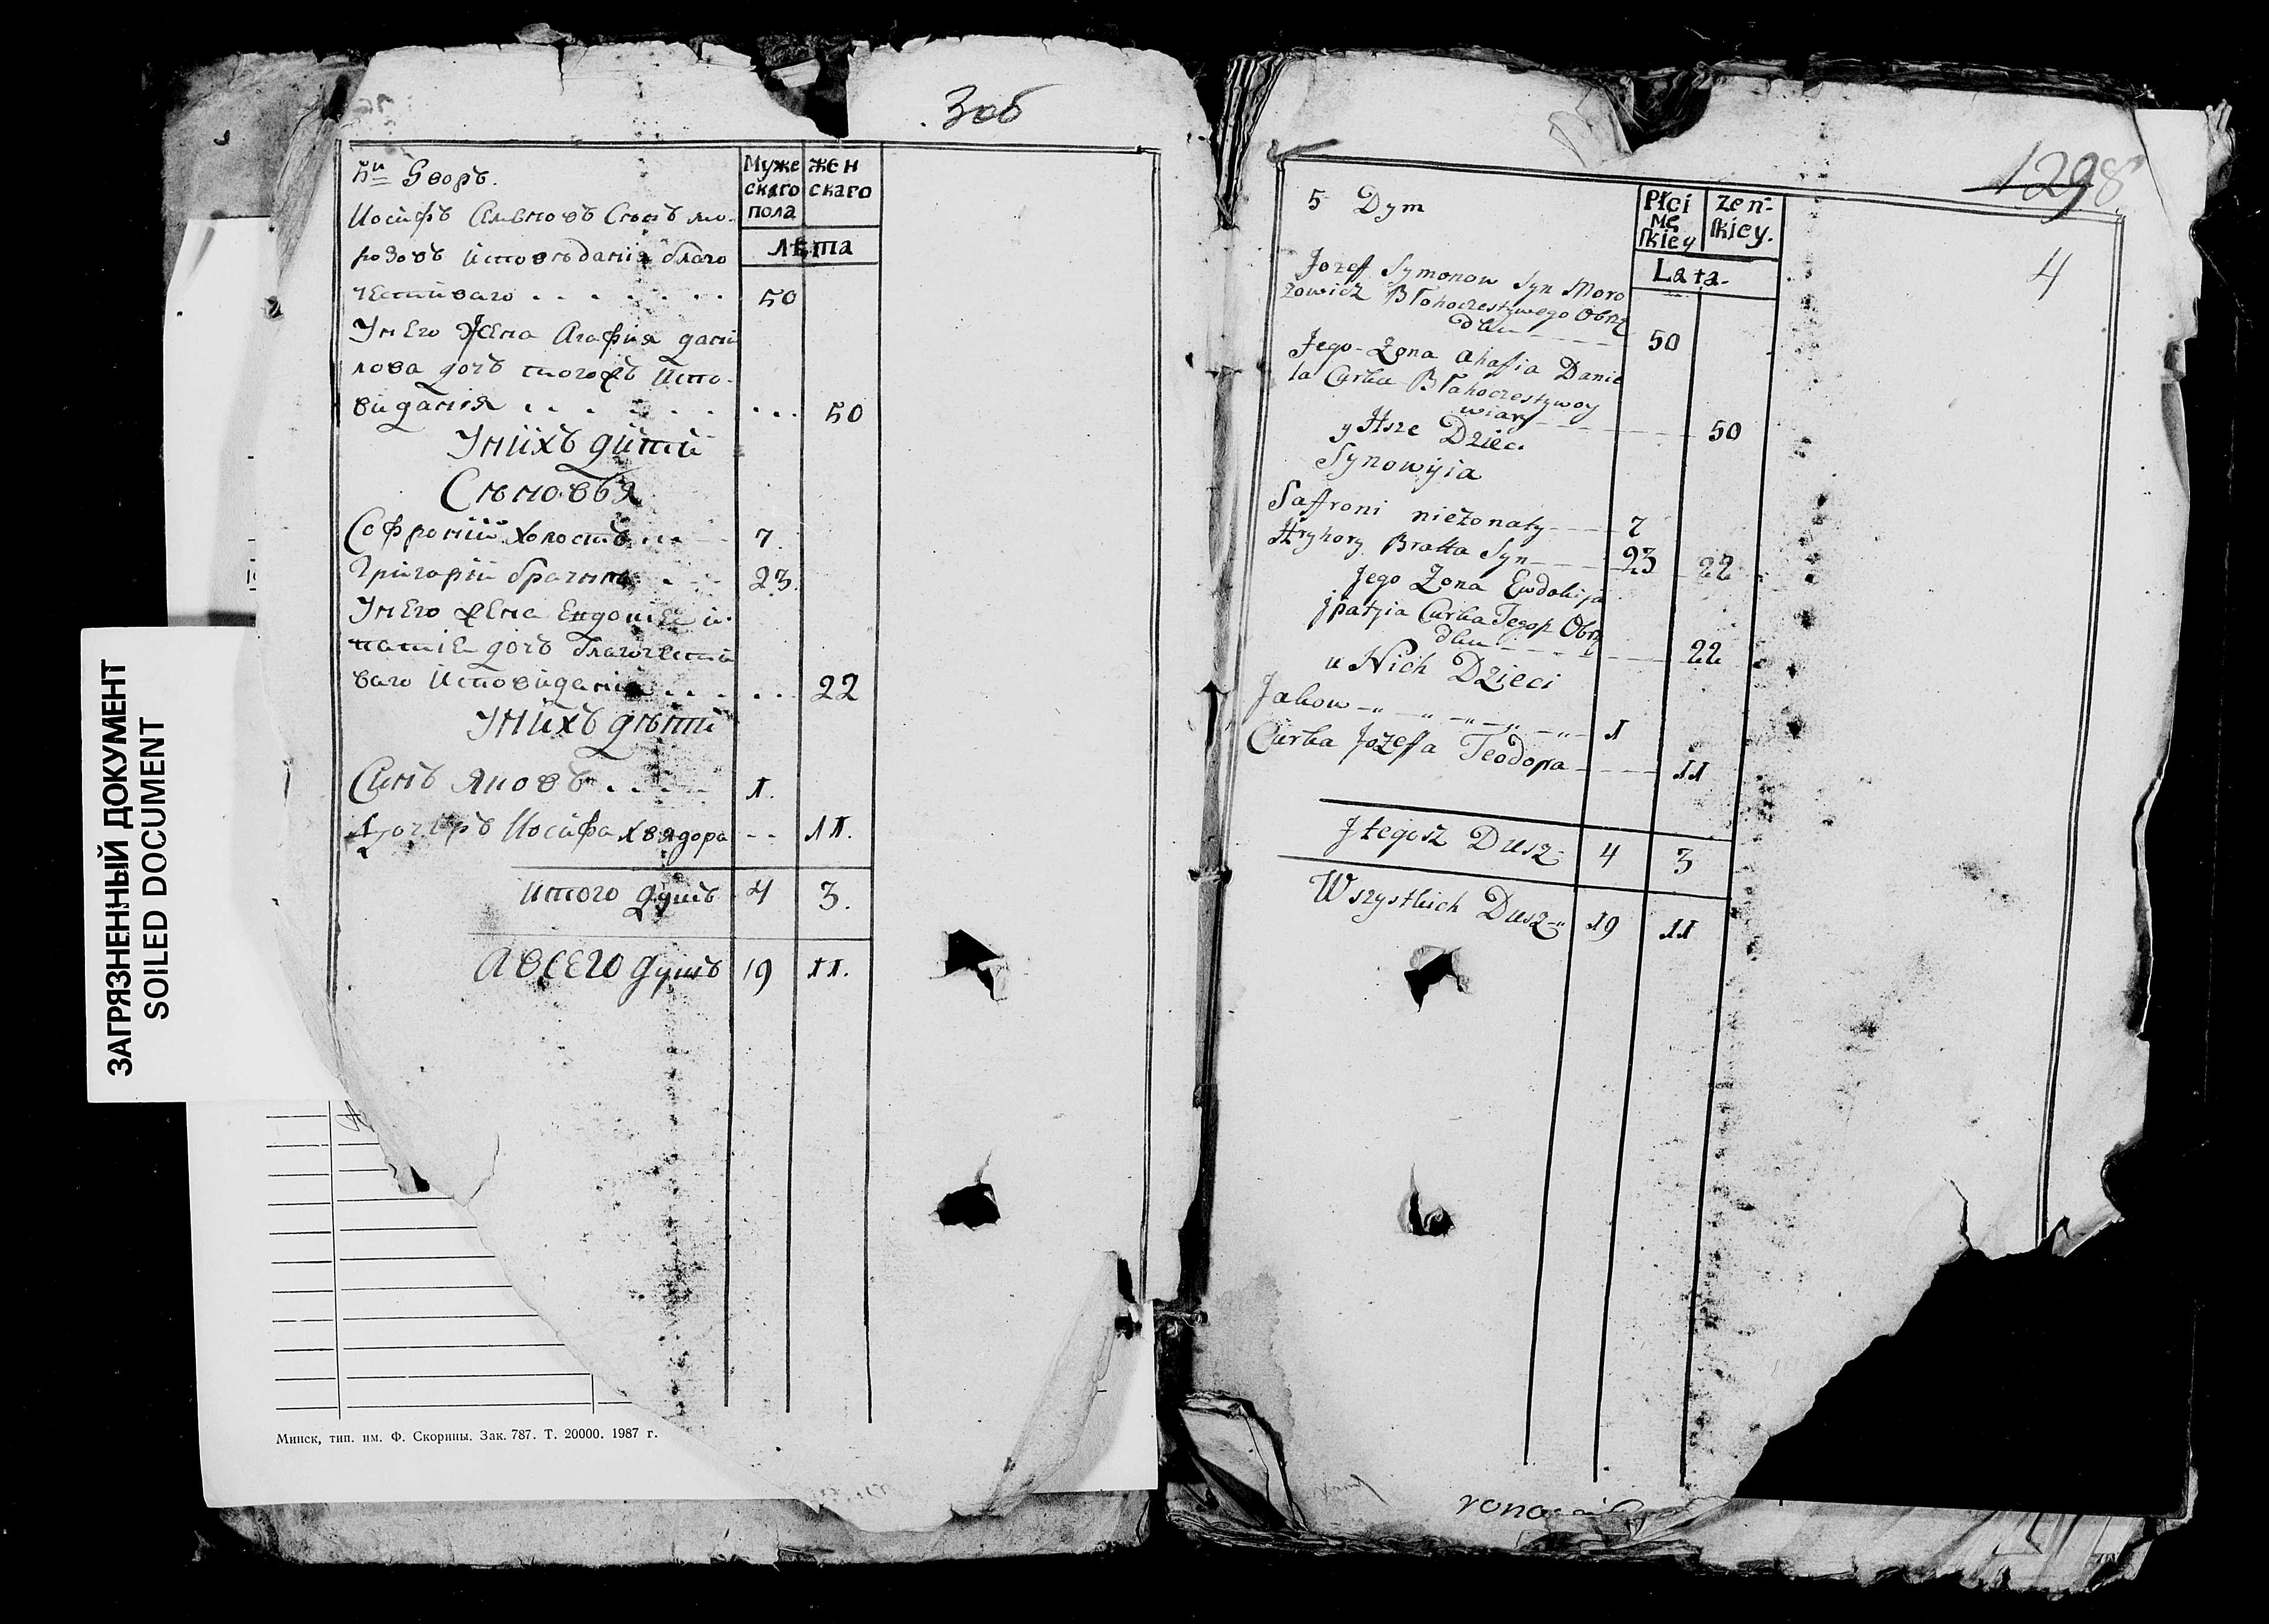 ЗАГРЯЗНЕННЫЙ ДОКУМЕНТ
SOILED DOCUMENT
3об
5й Дворъ.
Муже скаго пола
жен скаго
лѣта
Иосифъ Семеновъ Сынъ мо-
розовъ Исповѣдания благо
честиваго . . . . . . . 50
Унего жена Агафия дани
лова дочъ тогожъ Испо-
виданія . . . . . . . . . . 50
Унихъ дити
Сыновья
Софроний Холостъ . . 7.
Григорий 23.
Унего жена
дочъ благочести
ваго Исповиданія . . . . . 22
Унихъ дѣти
Синъ Яковъ . . . . 1.
Дочеръ Иосифа Хвядора - - 11.
итого душъ 4 3.
АВСЕГО душъ 19 11.
Минск, тип. им. Ф. Скорины. Зак. 787. Т. 20000. 1987 г.
1298
4
5 Dym
Płci mę skiey
zeń- skiey.
Lata-
Jozef Symonow Syn Moro
zowicz Błahoczestywego Obrzę
dku - - - - - 50
Jego Zona Ahafia Danie
la Curka Błahoczestywoy
wiary - - - - - 50
y Jsze Dzieci
Synowyia
Saffroni nieżonaty - - - 7
Hryhory Bratta Syn - - - 23 22
Jego Zona Ewdokija
Jpatyia Curka Tegoż Obrzę
dku - - - - - 22
u Nich Dzieci
Jakow - „ - „ - „ - „ - „ - 1
Curka Jozefa Teodora - - - 11
Jtegosz Dusz- 4 3
Wszystkich Dusz-„ 19 11